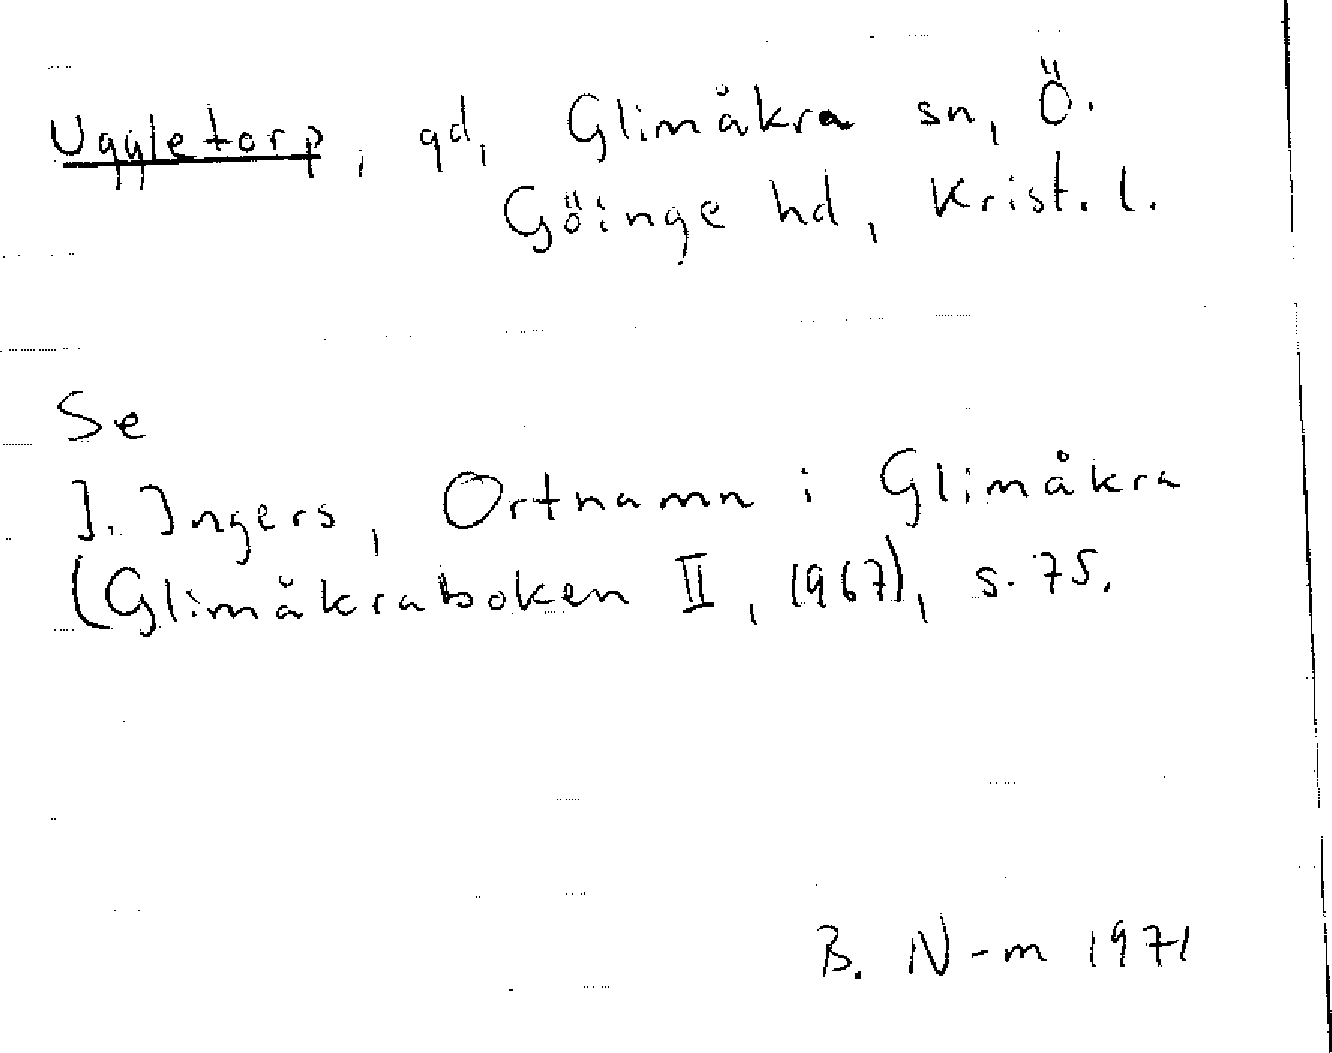 Uggletorp, gd, Glimåkra sn, Ö.
Göinge hd, Krist. l.
Se
I. Ingers, Ortnamn i Glimåkra
(Glimåkraboken II, 1967), s. 75.
B. N-m 1971